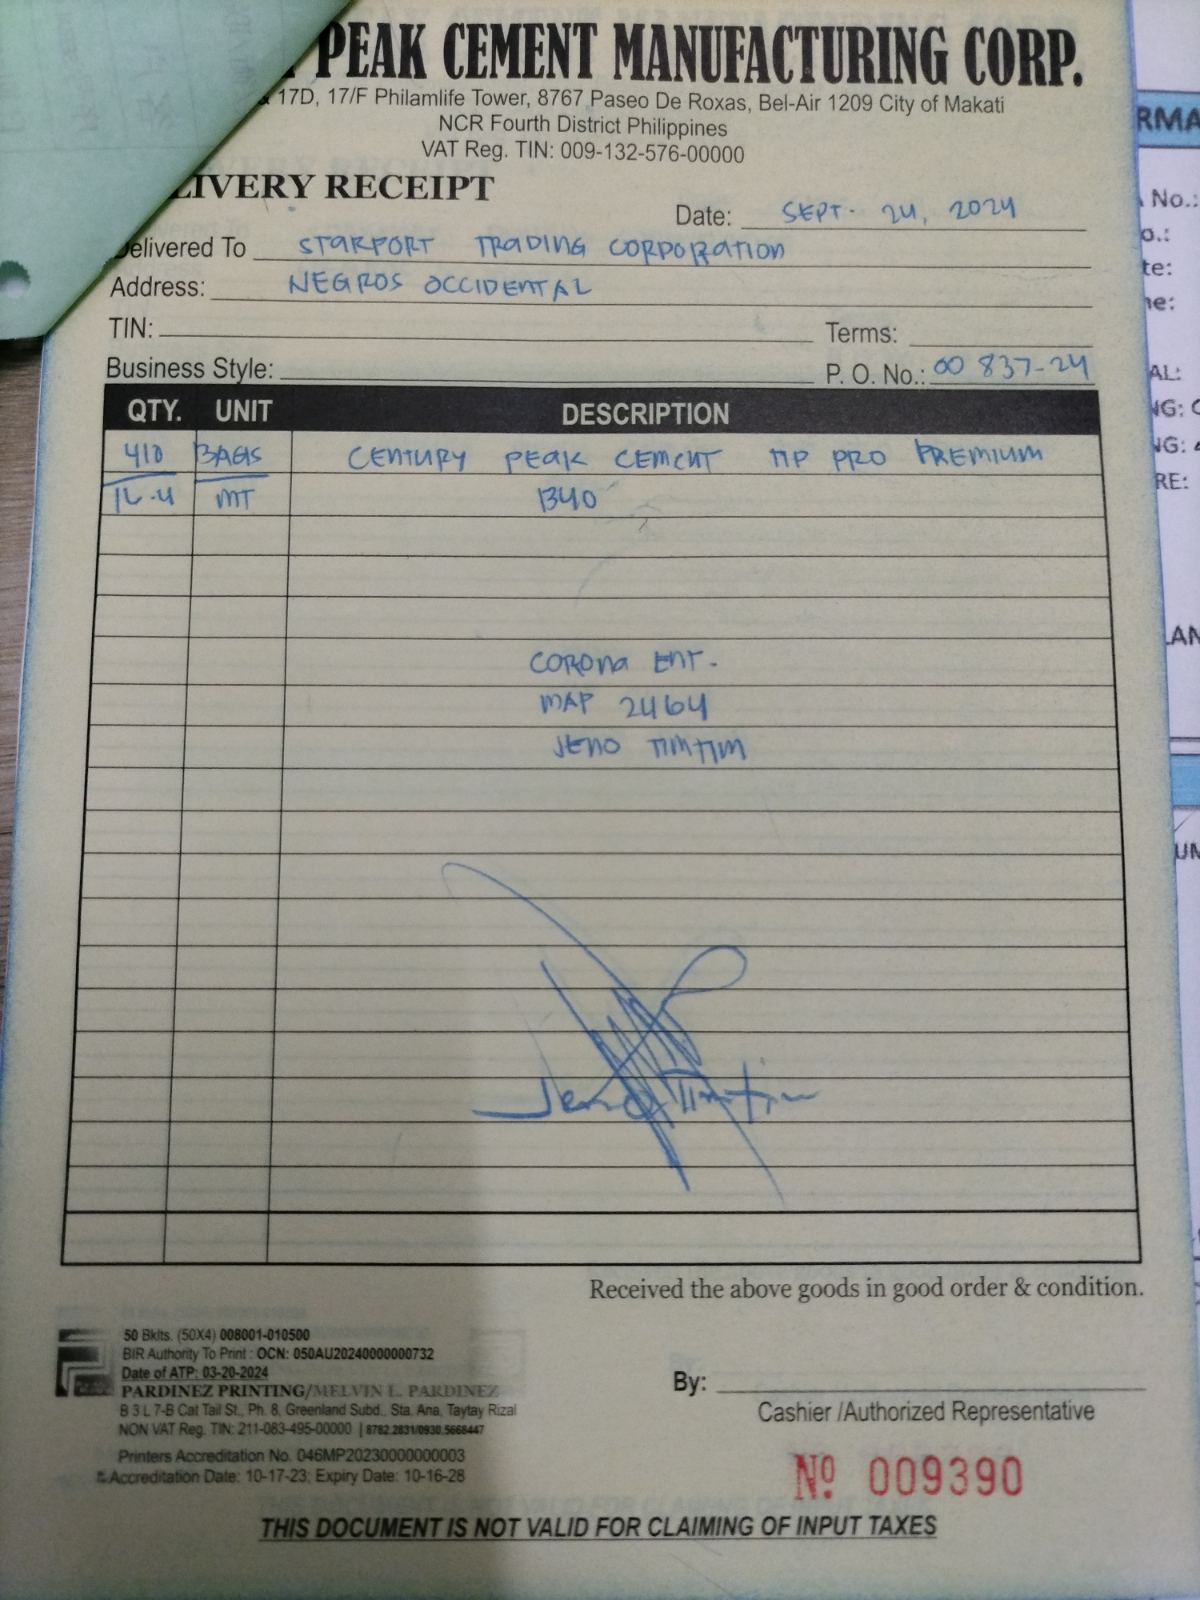 PEAK CEMENT MANUFACTURING CORP.
& 17D, 17/F Philamlife Tower, 8767 Paseo De Roxas, Bel-Air 1209 City of Makati
NCR Fourth District Philippines
VAT Reg. TIN: 009-132-576-00000
LIVERY RECEIPT
Date: SEPT. 24, 2024
Delivered To STARPORT TRADING CORPORATION
Address: NEGROS OCCIDENTAL
TIN: Terms:
Business Style: P. O. No.: 00 837-24
QTY. UNIT DESCRIPTION
410 BAGS CENTURY PEAK CEMENT PRO PREMIUM
16.4 MT 1340
CORONA ENT.
MAP 2464
JENO TIMTIM
Jeno Timtim
Received the above goods in good order & condition.
50 Bklts. (50X4) 008001-010500
BIR Authority To Print : OCN: 050AU20240000000732
Date of ATP: 03-20-2024
PARDINEZ PRINTING/MELVIN L. PARDINEZ
B 3 L 7-B Cat Tail St., Ph. 8, Greenland Subd., Sta. Ana, Taytay Rizal
NON VAT Reg. TIN: 211-083-495-00000 | 8782.2831/0930.5668447
Printers Accreditation No. 046MP20230000000003
Accreditation Date: 10-17-23; Expiry Date: 10-16-28
By:
Cashier /Authorized Representative
No 009390
THIS DOCUMENT IS NOT VALID FOR CLAIMING OF INPUT TAXES
RMA
No.:
o.:
te:
ne:
AL:
NG: C
NG: 4
RE:
LAN
UM